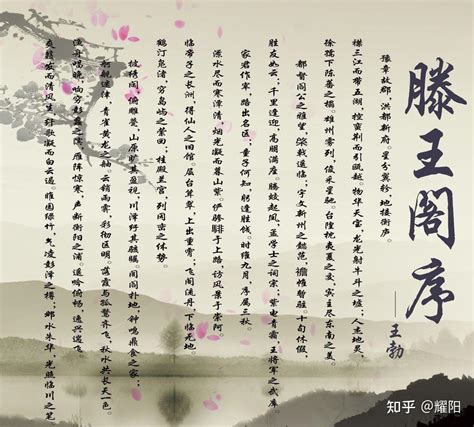 滕王阁序
——王勃
豫章故郡,洪都新府。星分翼轸,地接衡庐。
襟三江而带五湖,控蛮荆而引瓯越。物华天宝,龙光射牛斗之墟;人杰地灵,
徐孺下陈蕃之榻。雄州雾列,俊采星驰。台隍枕夷夏之交,宾主尽东南之美。
都督阎公之雅望,棨戟遥临;宇文新州之懿范,襜帷暂驻。十旬休假,
胜友如云;千里逢迎,高朋满座。腾蛟起凤,孟学士之词宗;紫电青霜,王将军之武库
家君作宰,路出名区;童子何知,躬逢胜饯。时维九月,序属三秋。
潦水尽而寒潭清,烟光凝而暮山紫。俨骖騑于上路,访风景于崇阿
临帝子之长洲,得仙人之旧馆。层台耸翠,上出重霄;飞阁流丹,下临无地。
鹤汀凫渚,穷岛屿之萦回;桂殿兰宫,列冈峦之体势。
披绣闼,俯雕甍,山原旷其盈视,川泽纡其骇瞩。闾阎扑地,钟鸣鼎食之家;
舸舰迷津,青雀黄龙之舳。云销雨霁,彩彻区明。落霞与孤鹜齐飞,秋水共长天一色。
渔舟唱晚,响穷彭蠡之滨,雁阵惊寒,声断衡阳之浦。遥吟俯畅,逸兴遄飞。
爽籁发而清风生,纤歌凝而白云遏。睢园绿竹,气凌彭泽之樽;邺水朱华,光照临川之笔
知乎 @耀阳